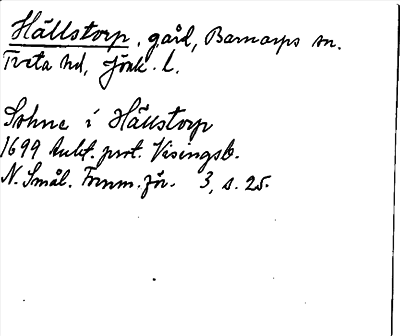 Hällstorp, gård, Barnarps sn.
Tveta hd, Jönk. l.
Sohne i Hällstorp
1699 Aukt. prot. Visingsb.
N. Smål. Fornm. för. 3, s. 25.